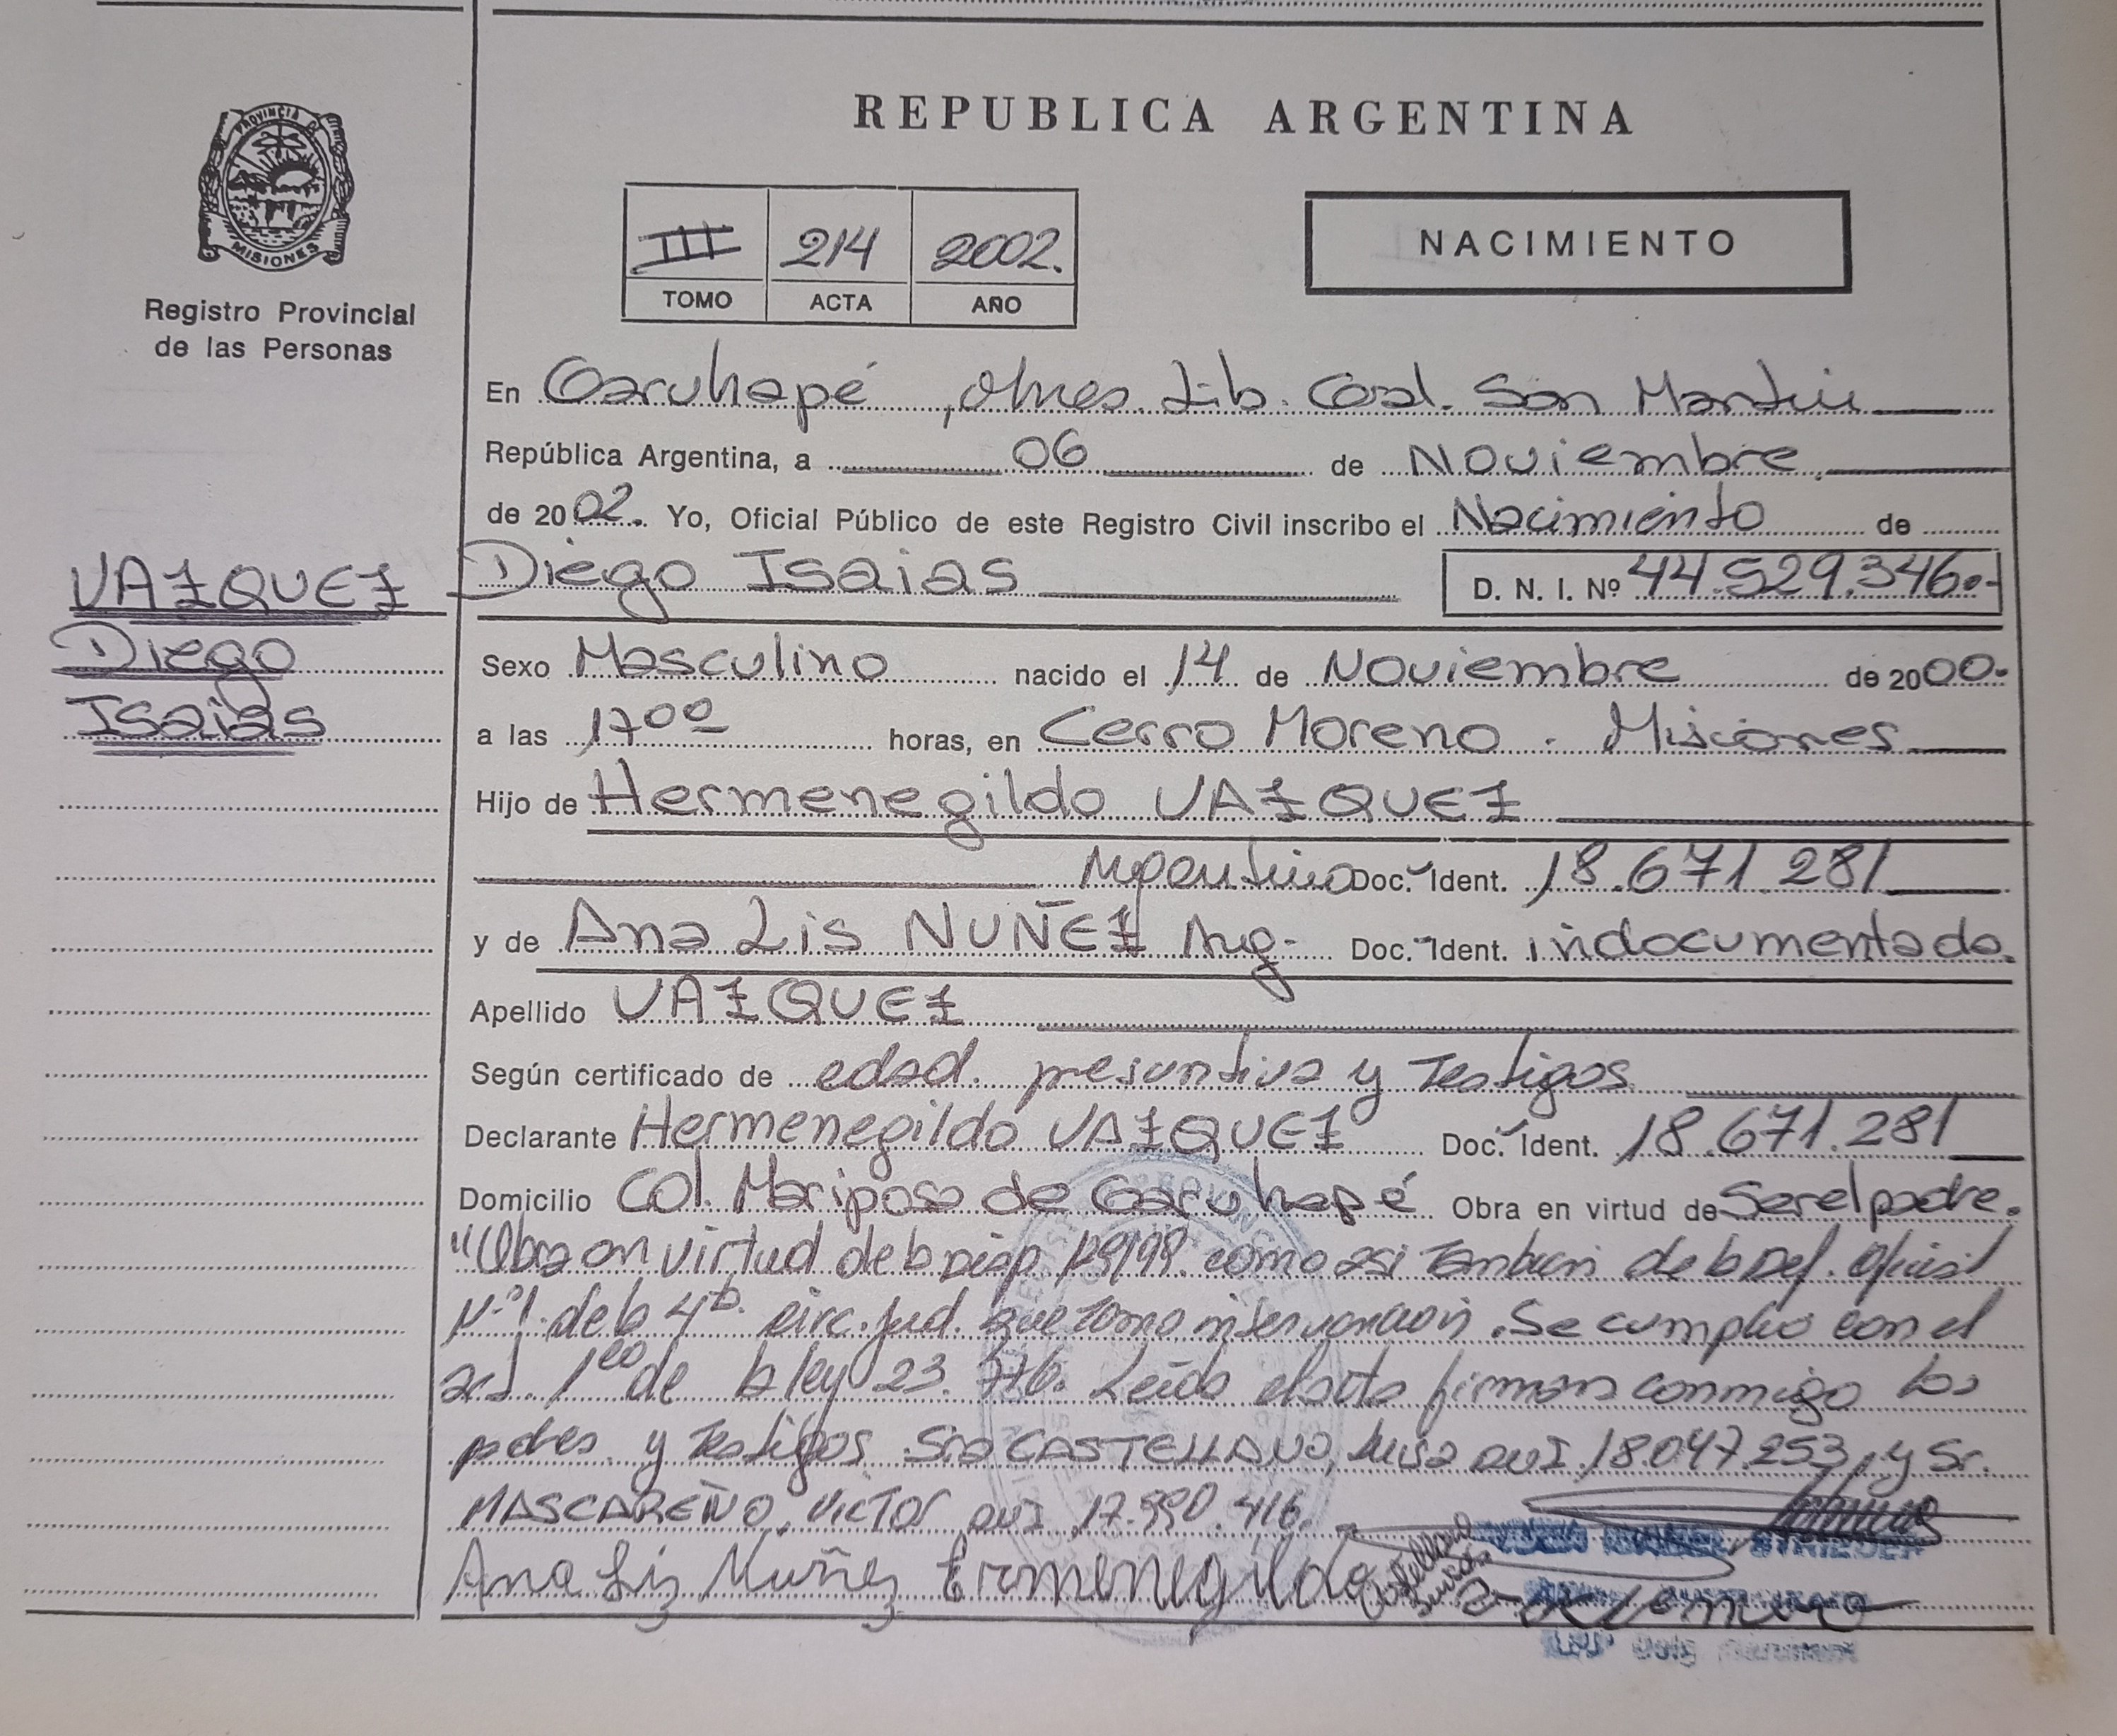 REPUBLICA ARGENTINA
PROVINCIA D
MISIONES
Registro Provincial
de las Personas
III 214 2002.
TOMO ACTA AÑO
NACIMIENTO
En Garuhapé, Lib. Gral. San Martin
República Argentina, a 06 de Noviembre
de 2002. Yo, Oficial Público de este Registro Civil inscribo el Nacimiento de
VAZQUEZ
Diego
Isaias
Diego Isaias D. N. I. Nº 44.529.346.-
Sexo Masculino nacido el 14 de Noviembre de 2000.
a las 17 00 horas, en Cerro Moreno. Misiones
Hijo de Hermenegildo VAZQUEZ
Argentino Doc. Ident. 18.671.281
y de Ana Lis NUÑEZ Arg. Doc. Ident. indocumentada.
Apellido VAZQUEZ
Según certificado de edad presuntiva y Testigos
Declarante Hermenegildo VAZQUEZ Doc. Ident. 18.671.281
Domicilio Col. Mariposa de Garuhapé Obra en virtud de Ser el padre.
"Obra en virtud de la Disp como asi Tambien de la Def. Oficial
Nº 1 de la 4ta circ. jud. que tomo intervencion. Se cumplio con el
art. 1º de la ley 23.776. Leida el acta firman conmigo los
padres y Testigos Sra CASTELLANO, Luisa DNI 18.047.253 y Sr.
MASCAREÑO, VICTOR DNI 17.990.416.
Ana Lis Nuñez Ermenegildo